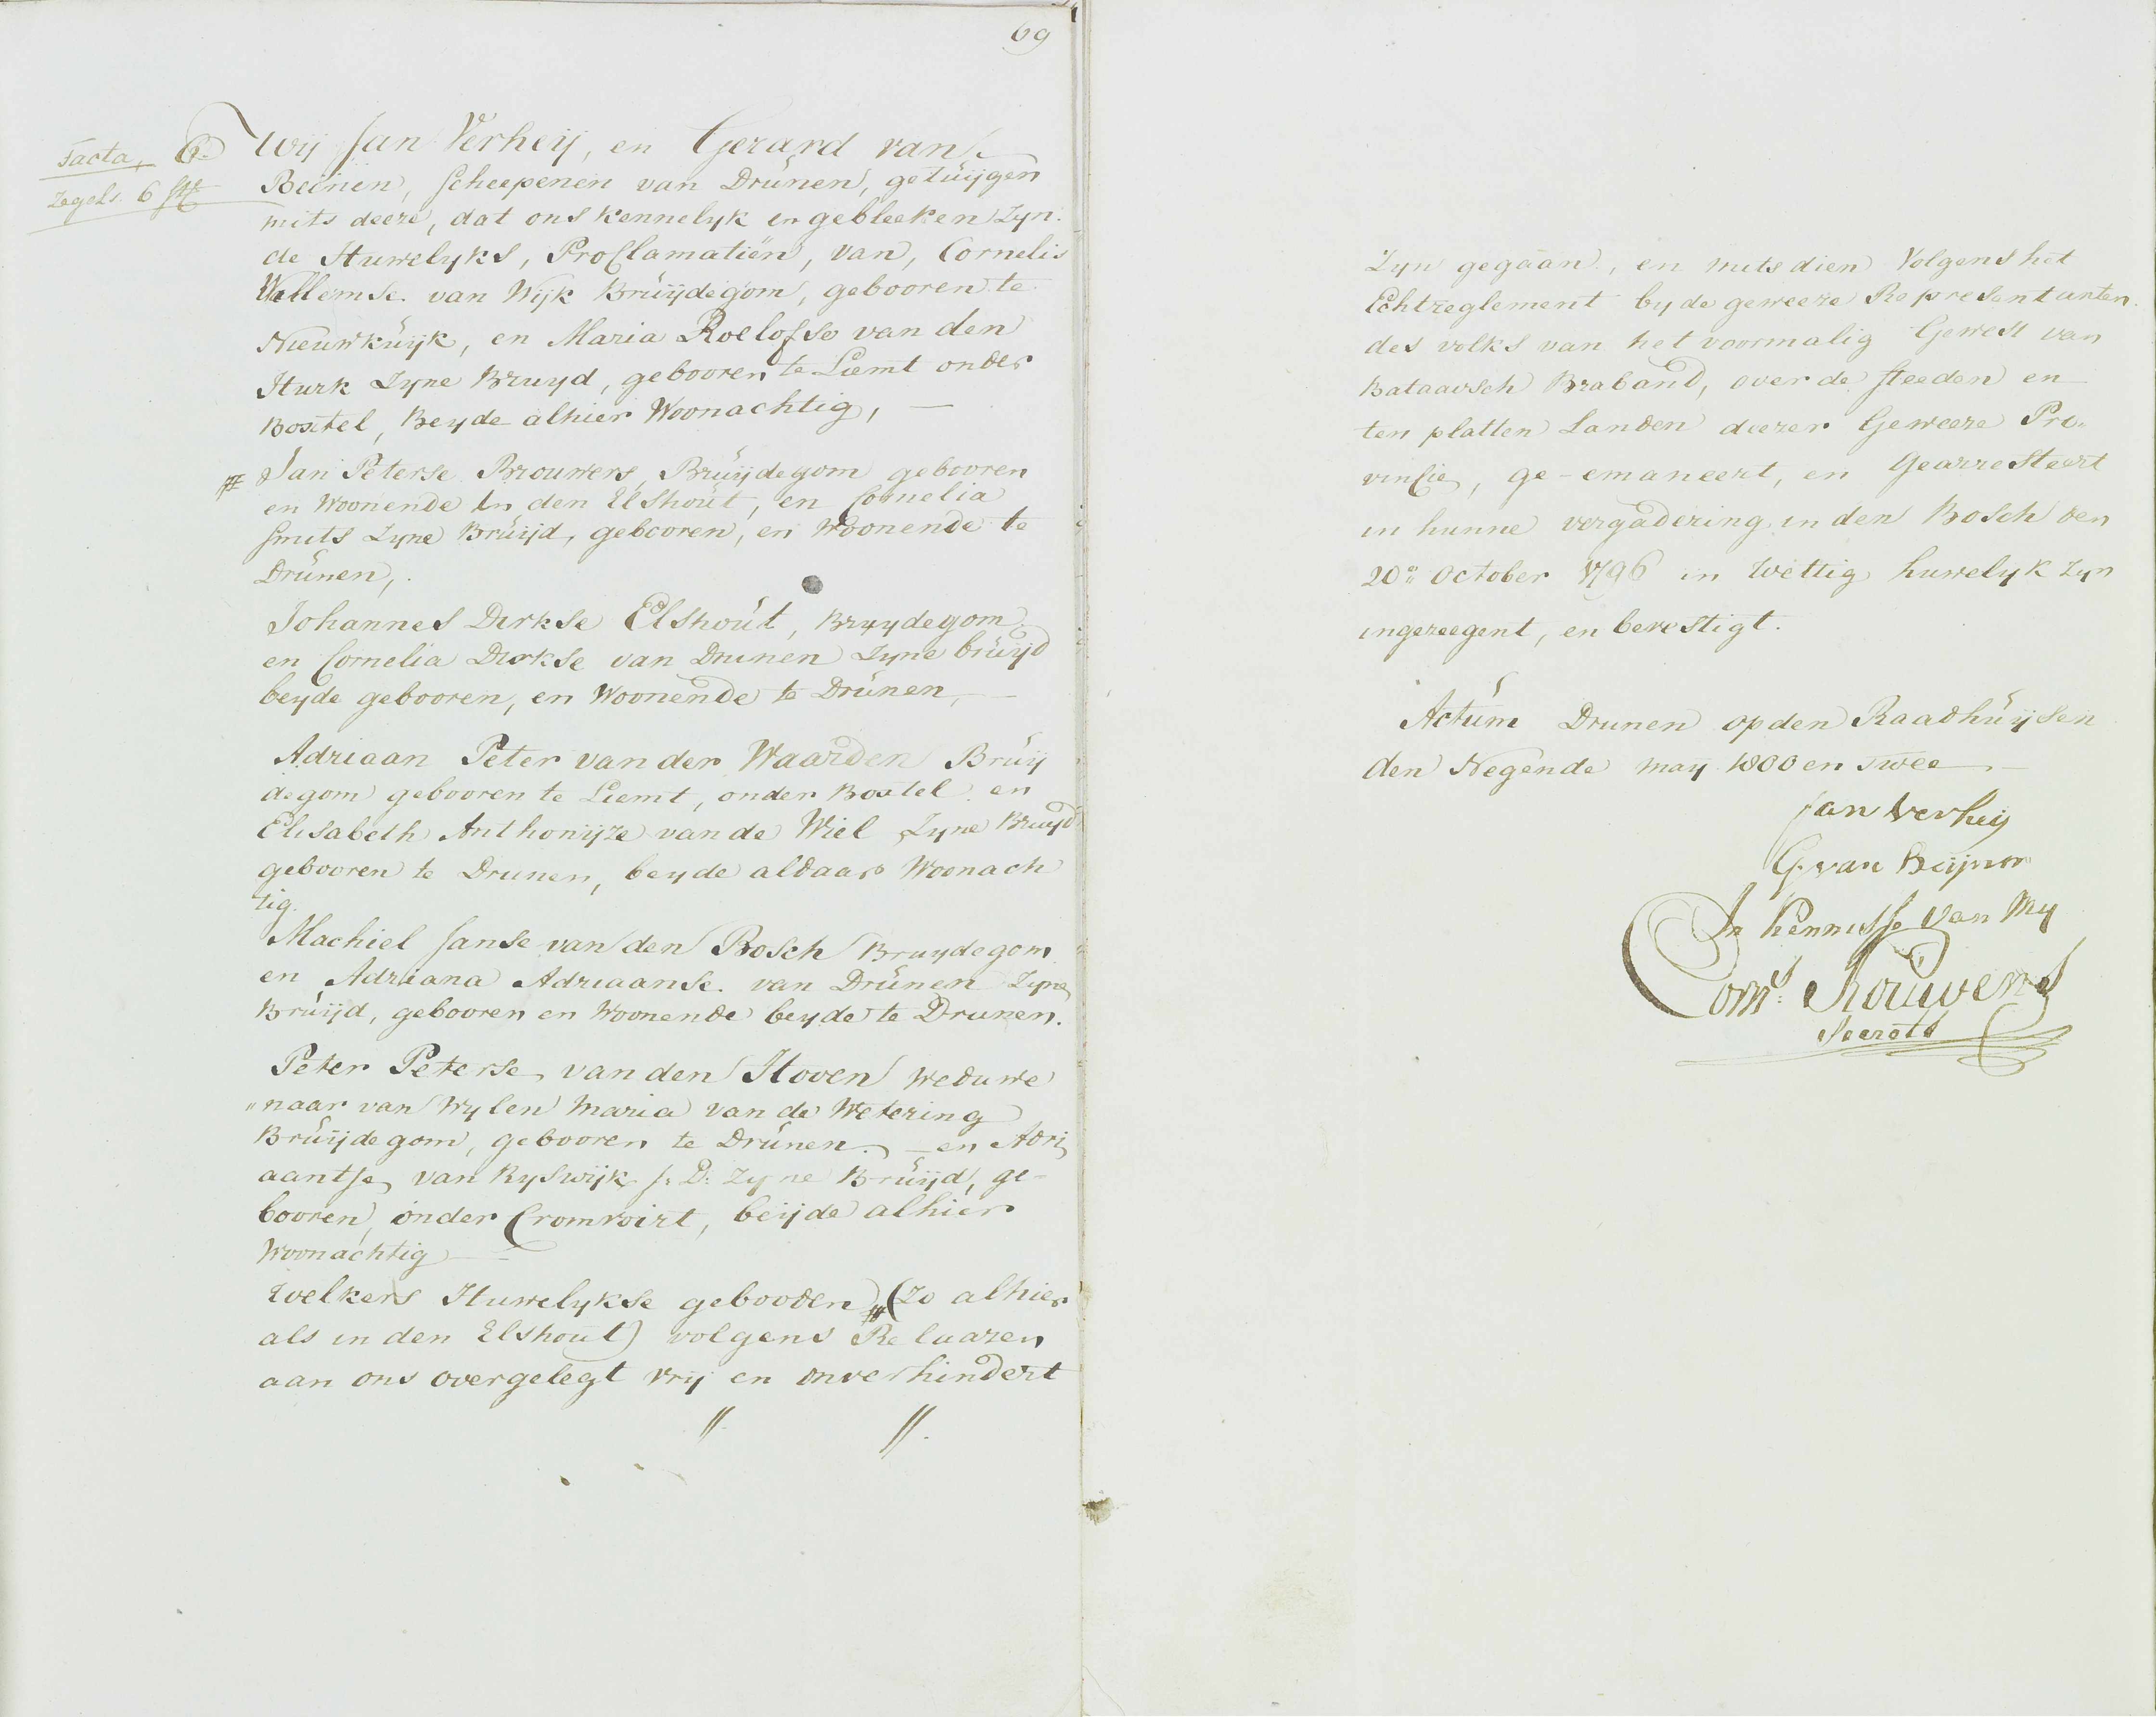 69
Facta, 6.
Zegels. 6 st
Wij Jan Verheij, en Gerard van
Beijnen, scheepenen van Drunen, getuijgen
mits deeze, dat ons kennelyk en gebleeken Zyn.
de Huwelyks, Proclamatiën, van, Cornelis
Willemse. van Wijk Bruijdegom, gebooren te
Nieuwkuijk, en Maria Roelofse van den
Hurk Zyne Bruyd, gebooren te Liemt onder
Boxtel, Beyde alhier Woonachtig, —
# Jan Peterse Brouwers, Bruijdegom gebooren
en Woonende In den Elshout, en Cornelia
Smits Zyne Bruijd, gebooren, en Woonende te
Drunen,.
Johannes Dirkse Elshout, Bruydegom
en Cornelia Dirkse van Drunen Zyne bruijd
beyde gebooren, en Woonende te Drunen, —
Adriaan Peter van der Waarden Bruij
degom gebooren te Liemt, onder Boxtel en
Elisabeth Anthonijze van de Wiel Zyne Bruyd
gebooren te Drunen, beyde aldaar Woonach
tig.
Machiel Janse van den Bosch Bruydegom
en Adriana Adriaanse. van Drunen Zyne
Bruijd, gebooren en Woonende beyde te Drunen.
Peter Peterse van den Hoven weduwe
"naar van Wylen Maria van de Wetering
Bruijdegom, gebooren te Drunen. — en Adri
aantje van Ryswijk J: D: Zyne Bruijd, ge-
booren, onder Cromvoirt, beijde alhier
Woonachtig —
Welkers Huwelykse gebooden # (Zo alhier
als in den Elshout) volgens Relaazen
aan ons overgelegt vrij en onverhindert
// //.
Zyn gegaan, en mits dien Volgens het
Echtreglement by de geweeze Representanten
des volks van het voormalig Gewest van
Bataavsch Braband, over de steeden en
ten platten Landen deezer Geweeze Pro„
vincie, ge-emaneert, en Gearresteert
in hunne vergadering in den Bosch den
20" October 1796 in Wettig huwelyk Zyn
ingezegent, en bevestigt.
Actum Drunen op den Raadhuijsen
den Negende may 1800 en Twee —
Jan Verheij
G. van Beijnen
In Kennisse van My
Corns. Rouwens
Secrets